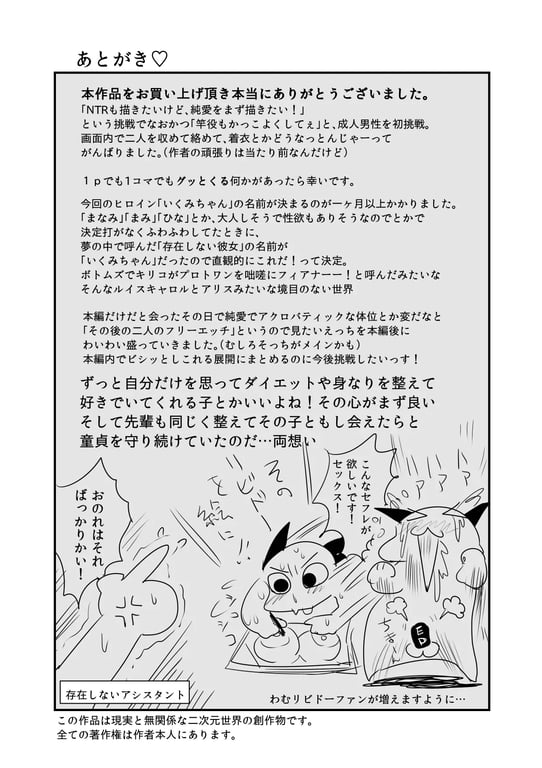 あとがき♡
本作品をお買い上げ頂き本当にありがとうございました。
「NTRも描きたいけど、純愛をまず描きたい！」
という挑戦でなおかつ「竿役もかっこよくしてぇ」と、成人男性を初挑戦。
画面内で二人を収めて絡めて、着衣とかどうなっとんじゃーって
がんばりました。（作者の頑張りは当たり前なんだけど）
１ｐでも1コマでもグッとくる何かがあったら幸いです。
今回のヒロイン「いくみちゃん」の名前が決まるのが一ヶ月以上かかりました。
「まなみ」「まみ」「ひな」とか、大人しそうで性欲もありそうなのでとかで
決定打がなくふわふわしてたときに、
夢の中で呼んだ「存在しない彼女」の名前が
「いくみちゃん」だったので直観的にこれだ！って決定。
ボトムズでキリコがプロトワンを咄嗟にフィアナーー！と呼んだみたいな
そんなルイスキャロルとアリスみたいな境目のない世界
本編だけだと会ったその日で純愛でアクロバティックな体位とか変だなと
「その後の二人のフリーエッチ」というので見たいえっちを本編後に
わいわい盛っていきました。（むしろそっちがメインかも）
本編内でビシッとしこれる展開にまとめるのに今後挑戦したいっす！
ずっと自分だけを思ってダイエットや身なりを整えて
好きでいてくれる子とかいいよね！その心がまず良い
そして先輩も同じく整えてその子ともし会えたらと
童貞を守り続けていたのだ…両想い
アアアア
こんなセフレが
欲しいです！
セックス！
おのれはそれ
ばっかりかい！
ED
存在しないアシスタント
わむリビドーファンが増えますように…
この作品は現実と無関係な二次元世界の創作物です。
全ての著作権は作者本人にあります。